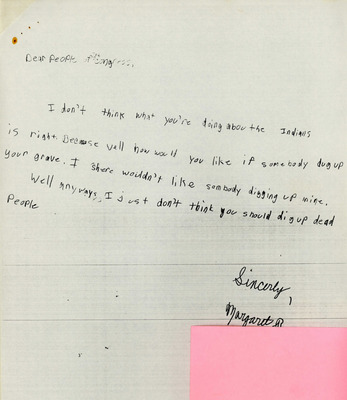 Dear People of Congress,
I don't think what you're doing about the Indians
is right. Because well how would you like if somebody dug up
your grave. I shore wouldn't like sombody digging up mine.
Well anyways, I just don't think you should dig up dead
People
Sincerly,
Margaret